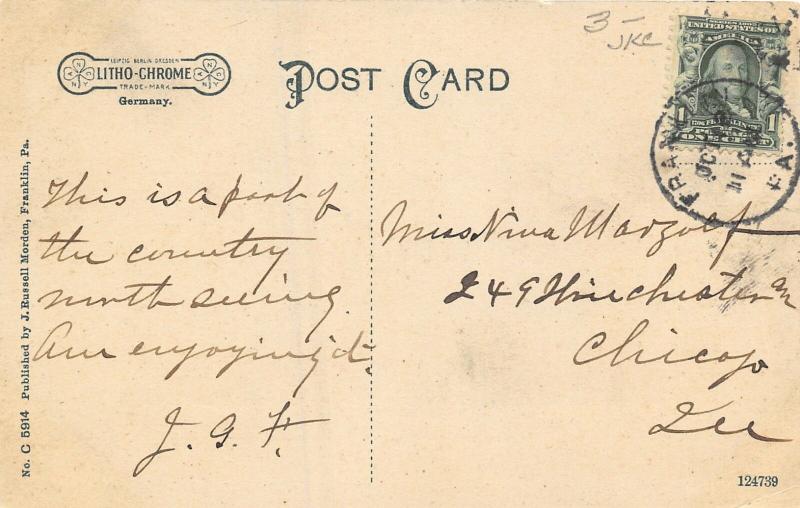 3 —
JKC
SERIES 1902
UNITED STATES OF
AMERICA
1 FRANKLIN 1
POSTAGE
ONE CENT
FRANKLIN
PA.
LEIPZIG BERLIN DRESDEN
LITHO-CHROME
TRADE-MARK
Germany.
POST CARD
This is a part of
the country
worth seeing.
Am enjoying it.
J. G. F.
Miss Nina Marzolf
249 Winchester
Chicago
Ill
No. C 5914 Published by J. Russell Morden, Franklin, Pa.
124739